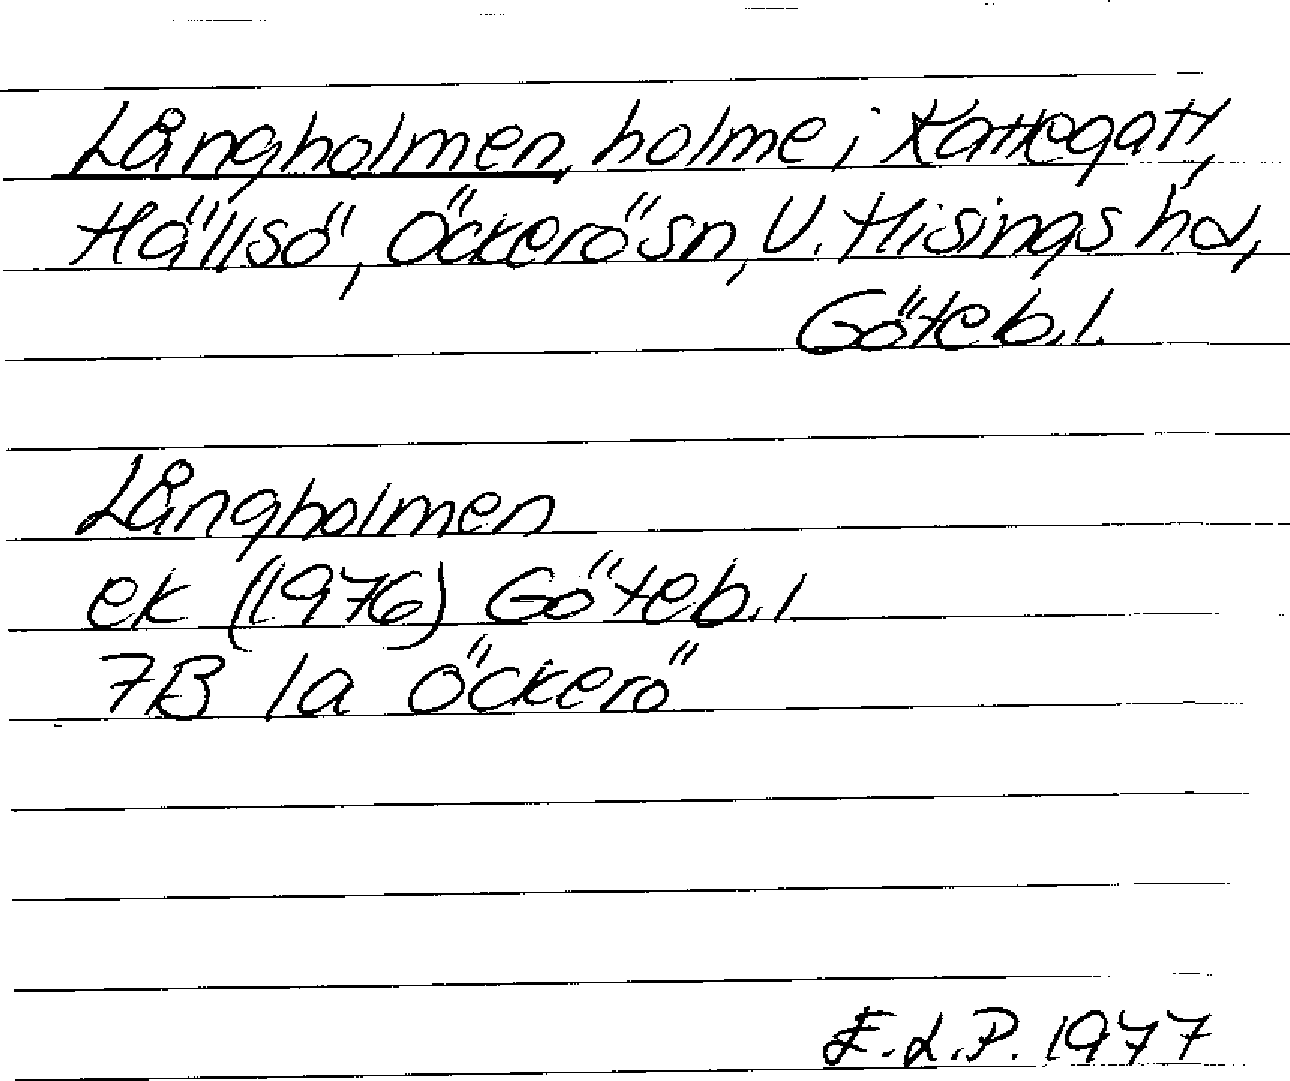 Långholmen, holme i Kattegatt,
Hällsö, Öckerö sn, V. Hisings hd,
Göteb. l.
Långholmen
ek (1976) Göteb. l
7B 1a Öckerö
E.L.P. 1977